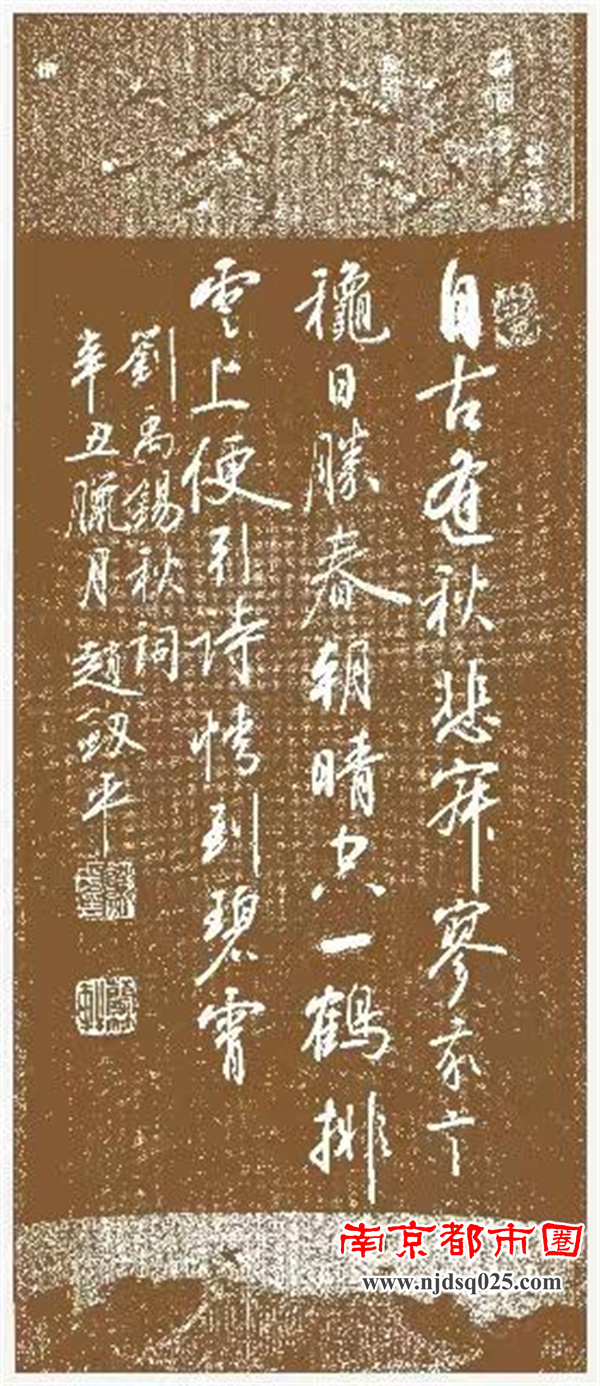 自古逢秋悲寂寥我言
穐日勝春朝晴空一鶴排
雲上便引詩情到碧霄
劉禹錫秋詞
辛丑臘月趙平
南京都市圈
www.njdsq025.com